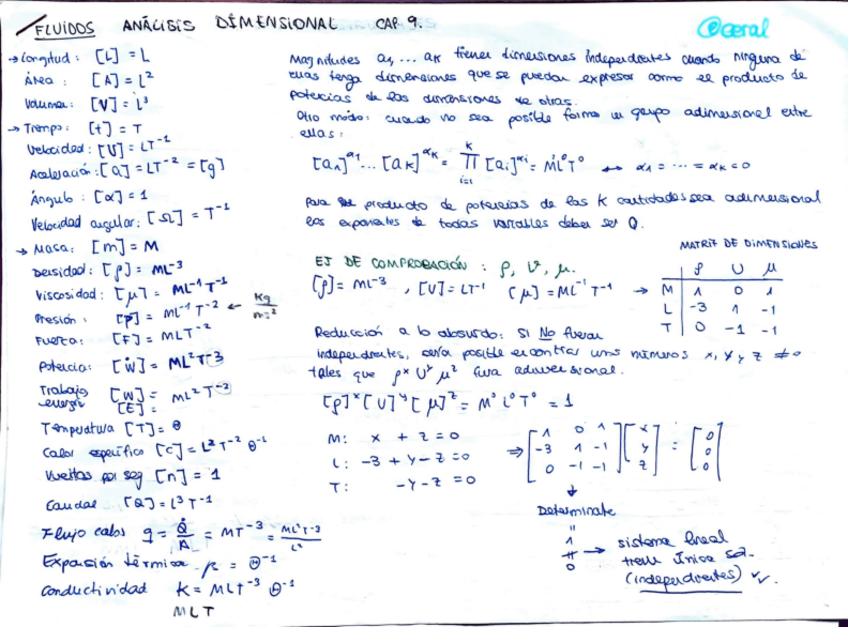 FLUIDOS ANÁLISIS DIMENSIONAL CAP. 9.
@ceral
→ Longitud: [L] = L
Área: [A] = L²
Volumen: [V] = L³
→ Tiempo: [t] = T
Velocidad: [U] = LT⁻¹
Aceleración: [a] = LT⁻² = [g]
Ángulo: [α] = 1
Velocidad angular: [Ω] = T⁻¹
→ Masa: [m] = M
Densidad: [ρ] = ML⁻³
Viscosidad: [μ] = ML⁻¹T⁻¹
Presión: [P] = ML⁻¹T⁻² ←
Fuerza: [F] = MLT⁻²
Potencia: [Ẇ] = ML²T⁻³
Trabajo [W] = ML²T⁻²
energía [E] =
Temperatura [T] = θ
Calor específico [c] = L²T⁻²θ⁻¹
Vueltas por seg [n] = 1
Caudal [Q] = L³T⁻¹
Flujo calor q = Q̇/A = MT⁻³ = ML²T⁻³/L²
Expansión térmica β = Θ⁻¹
Conductividad K = MLT⁻³ Θ⁻¹
MLT
Magnitudes a₁, ... aₖ tienen dimensiones independientes cuando ninguna de
ellas tenga dimensiones que se puedan expresar como el producto de
potencias de las dimensiones de otras.
Otro modo: cuando no sea posible formar un grupo adimensional entre
ellas:
[a₁]^α₁ ... [aₖ]^αₖ = ∏ᵢ₌₁ᴷ [aᵢ]^αᵢ = M⁰L⁰T⁰ ↔ α₁ = ... = αₖ = 0
Para producto de potencias de las K cantidades sea adimensional
los exponentes de todas variables deben ser 0.
MATRIZ DE DIMENSIONES
EJ DE COMPROBACIÓN: ρ, U, μ.
[ρ] = ML⁻³, [U] = LT⁻¹ [μ] = ML⁻¹T⁻¹ →
ρ U μ
M 1 0 1
L -3 1 -1
T 0 -1 -1
Reducción a lo absurdo: Si NO fueran
independientes, sería posible encontrar unos números x, y y z ≠ 0
tales que ρˣ Uʸ μᶻ fuera adimensional.
[ρ]ˣ [U]ʸ [μ]ᶻ = M⁰L⁰T⁰ = 1
M: x + z = 0
L: -3 + y - z = 0
T: -y - z = 0
⇒ [1 0 1] [x] = [0]
[-3 1 -1] [y] [0]
[0 -1 -1] [z] [0]
↓
Determinante
=
1
≠ → sistema lineal
0 tiene única sol.
(independientes) ✓✓.